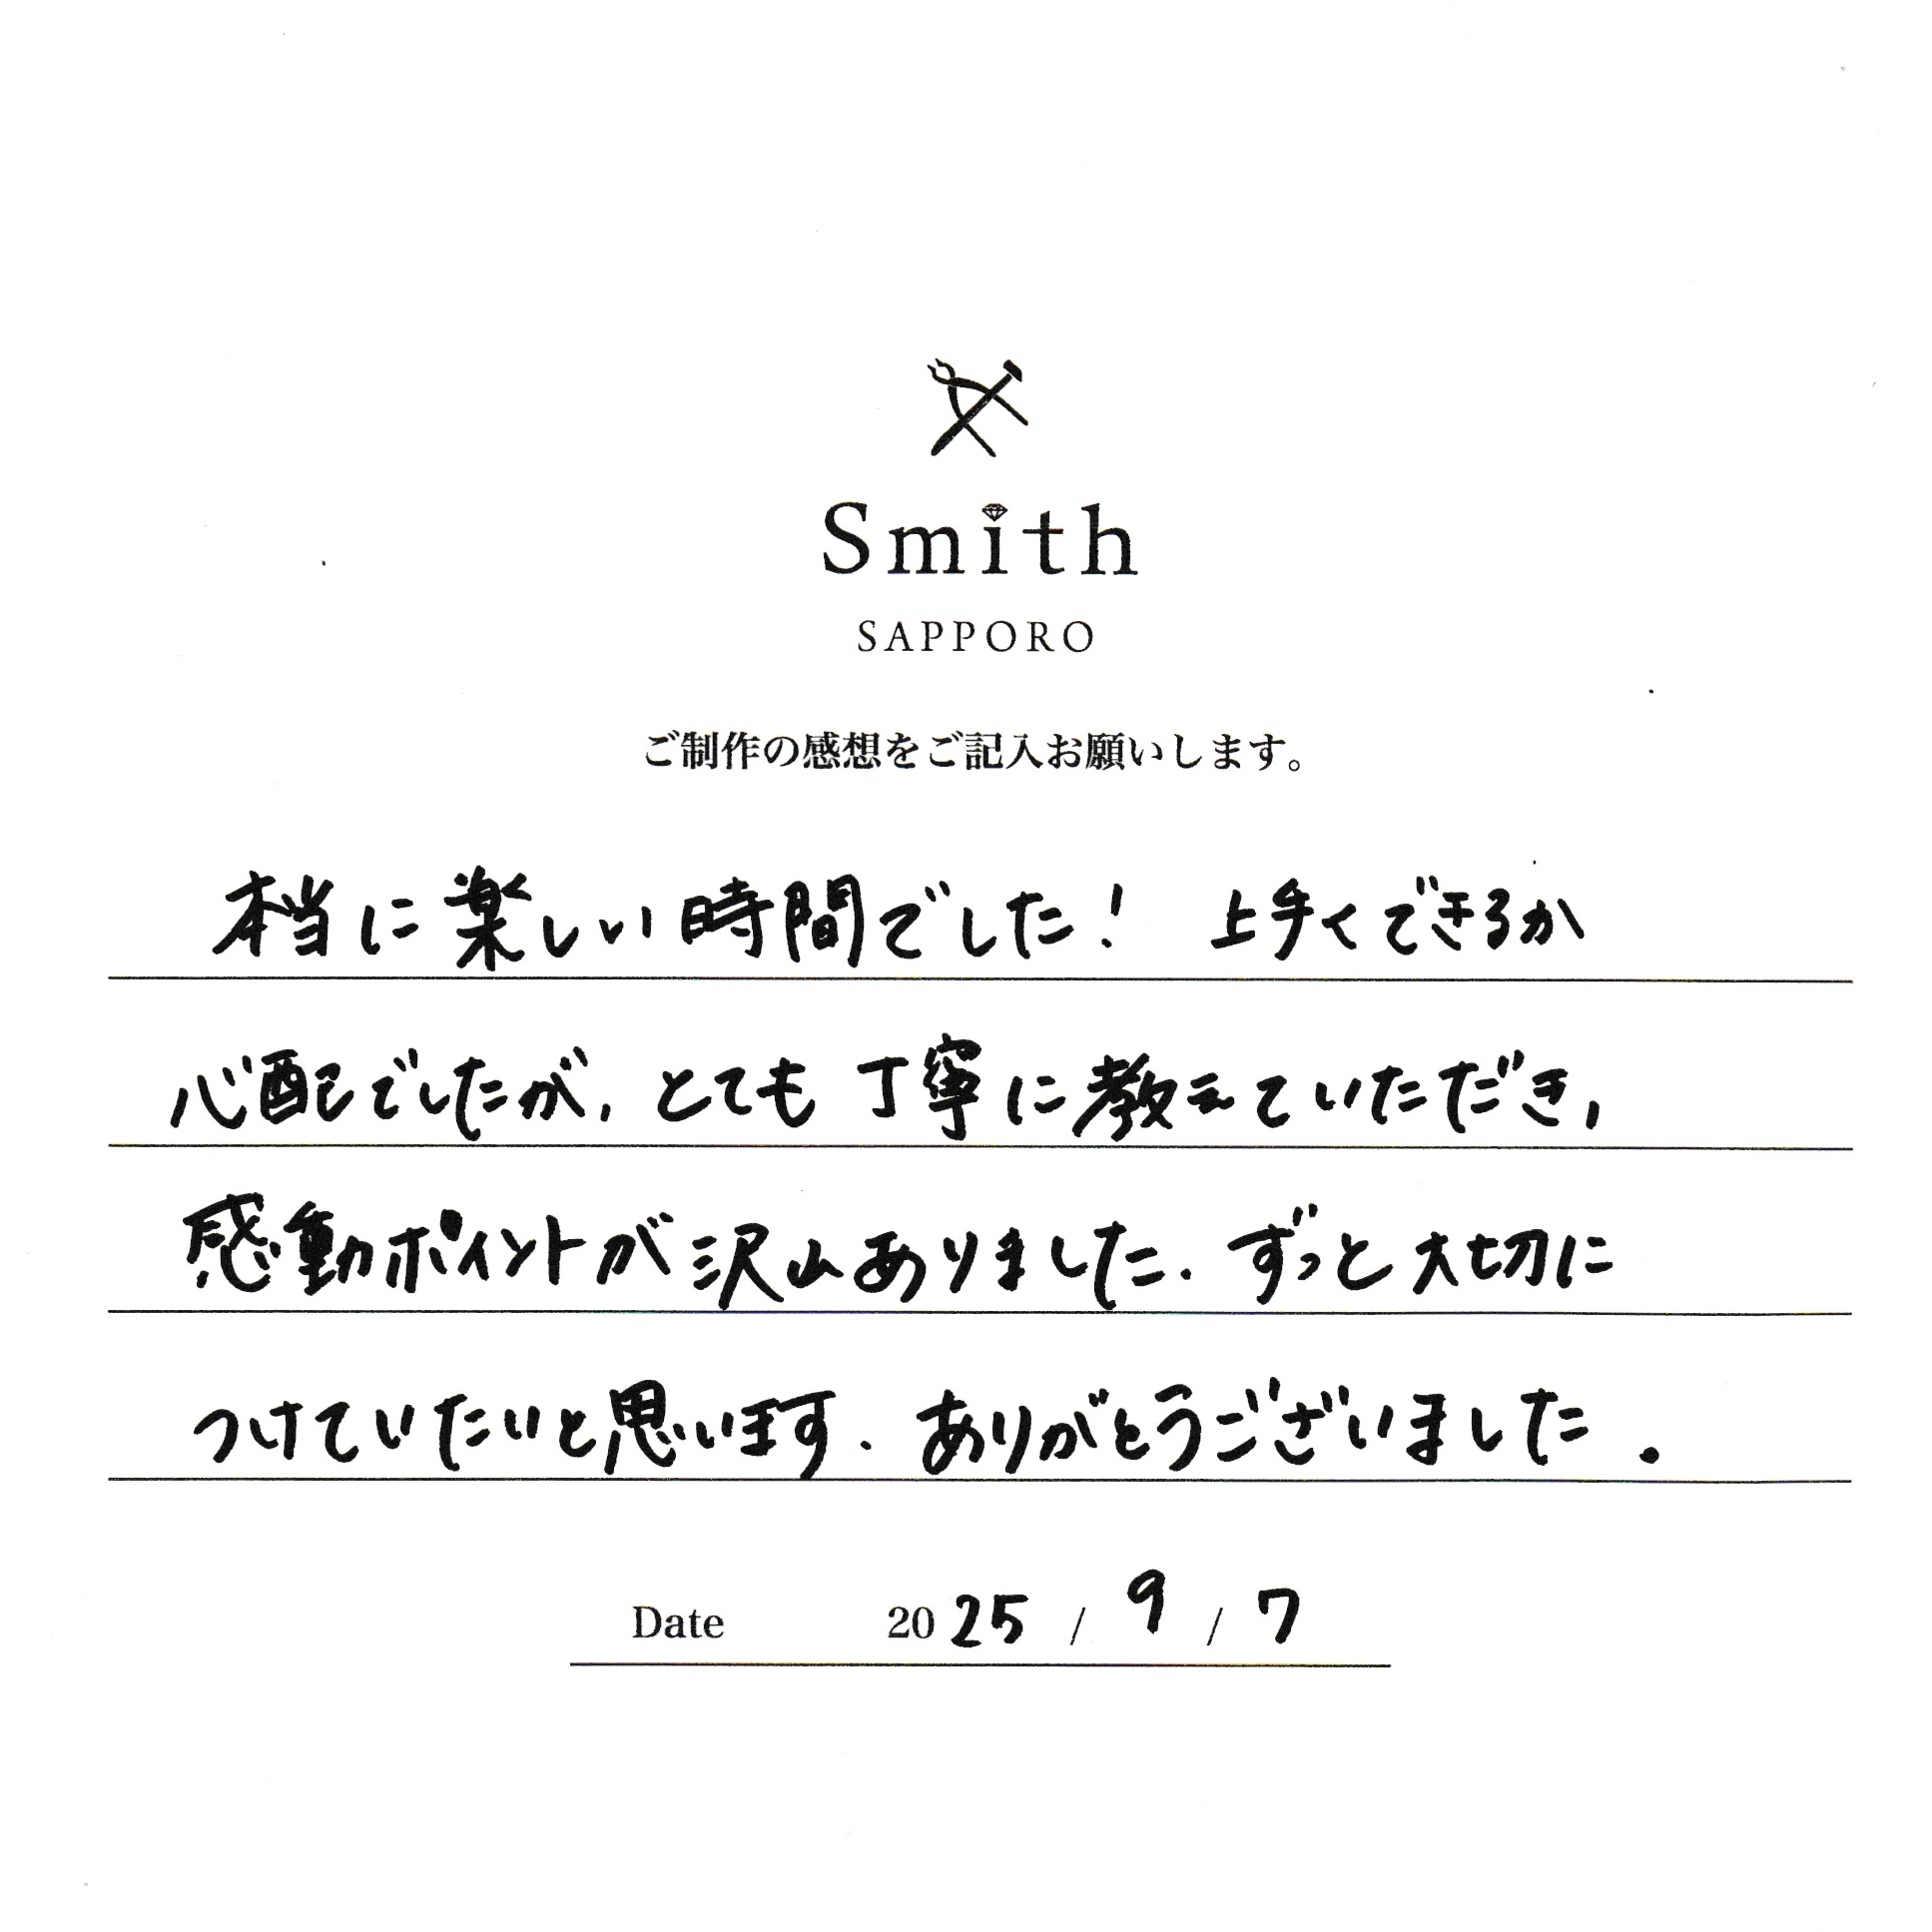 Smith
SAPPORO
ご制作の感想をご記入お願いします。
本当に楽しい時間でした! 上手くできるか
心配でしたが、とても丁寧に教えていただき、
感動ポイントが沢山ありました. ずっと大切に
つけていたいと思います. ありがとうございました.
Date 2025 / 9 / 7